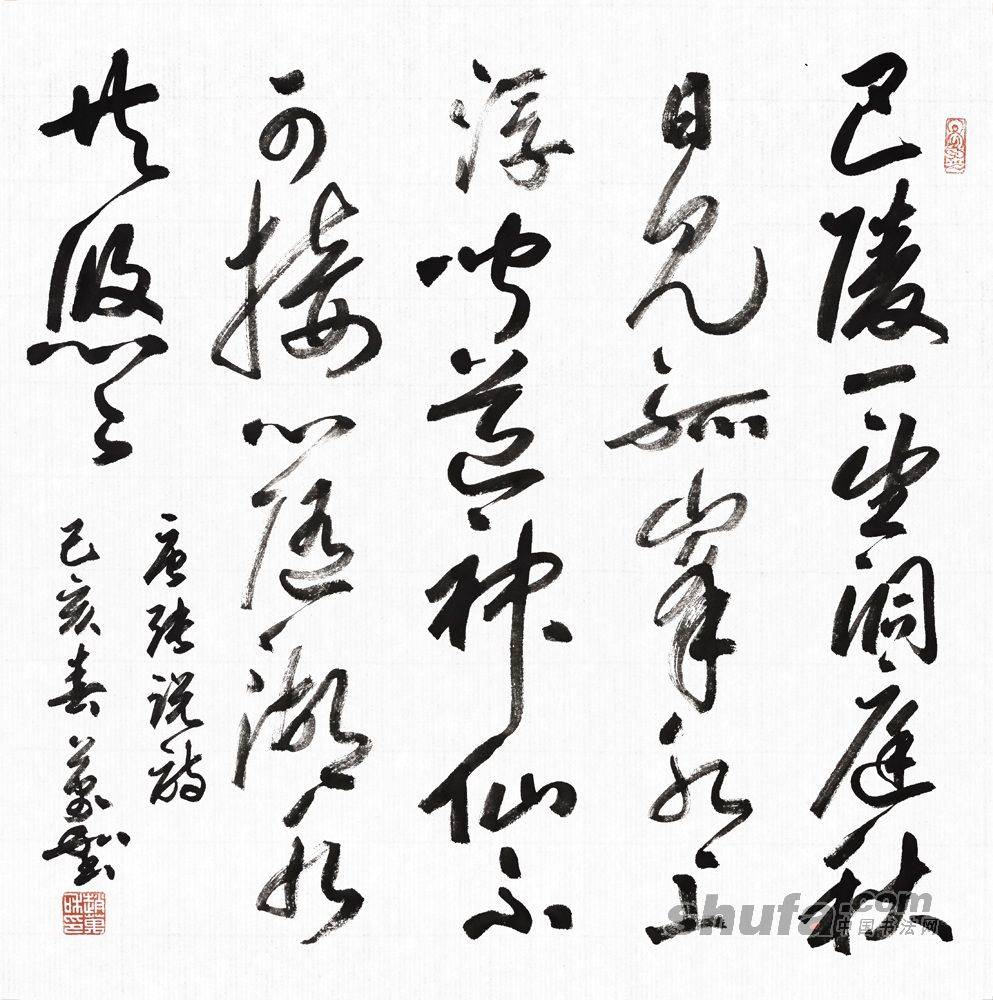 巴陵一望洞庭秋
日見孤峯水上
浮聞道神仙不
可接心隨湖水
共悠々
唐張說詩
己亥春
shufa.com
中国书法网